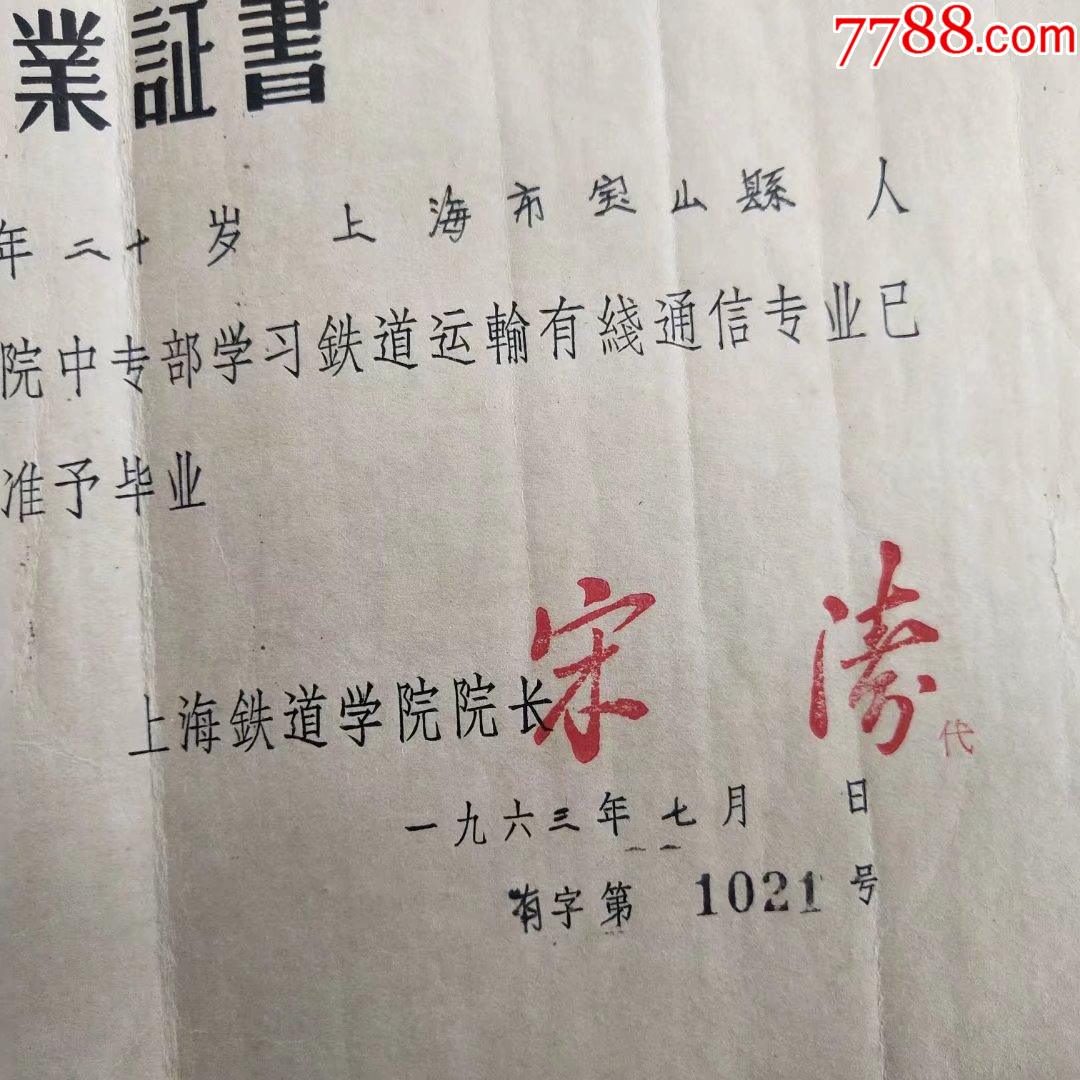 7788.com
業証書
年二十岁上海市宝山縣人
院中专部学习鉄道运輸有綫通信专业已
准予毕业
上海鉄道学院院长宋濤代
一九六三年七月 日
有字第1021号